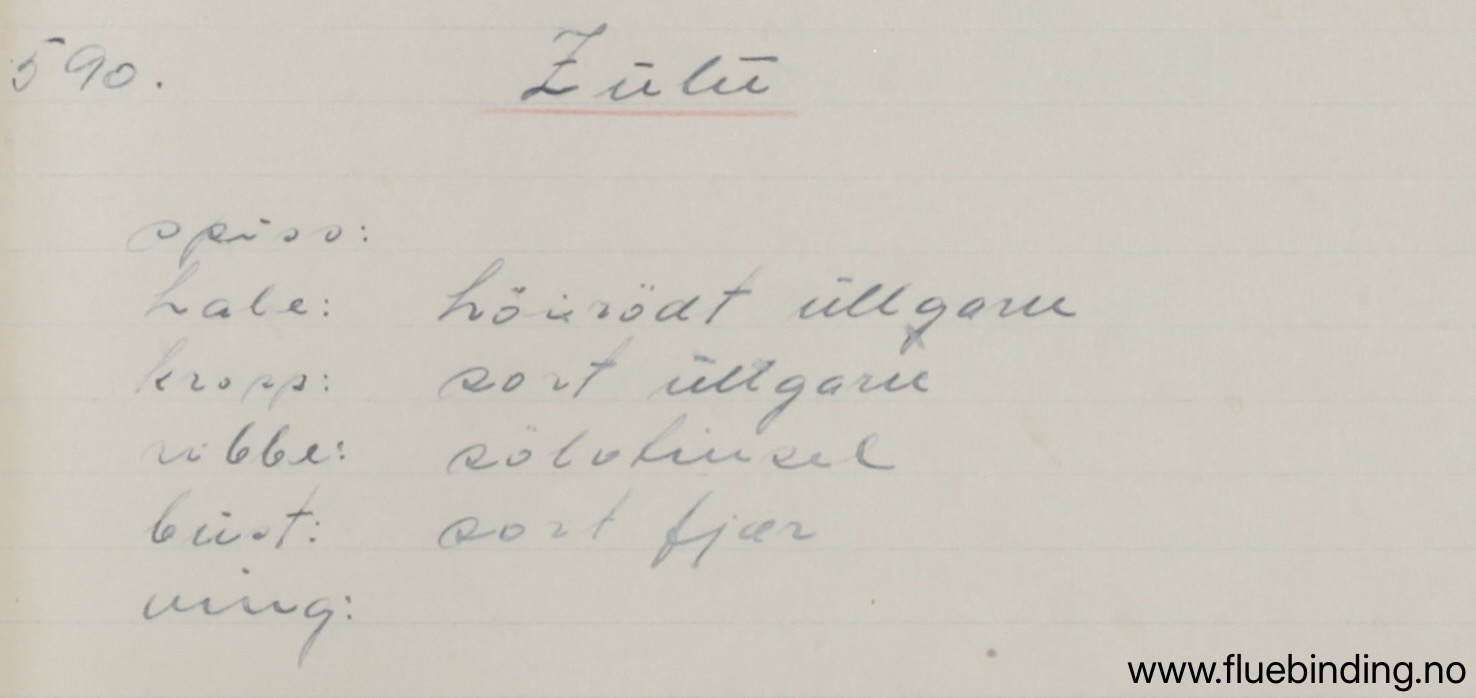 590. Zülü
spiss:
hale: höirödt üllgarn
kropp: sort üllgarn
ribbe: sölvtinsel
büst: sort fjær
ving:
www.fluebinding.no